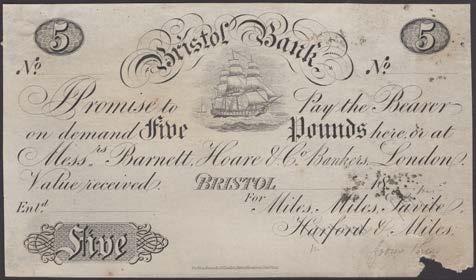 5 Bristol Bank 5
No. No.
I Promise to Pay the Bearer
on demand Five Pounds here, or at
Messrs. Barnett, Hoare & Co. Bankers, London.
Value received. BRISTOL 18
For Miles, Miles, Savile,
Entd. Harford & Miles.
Five